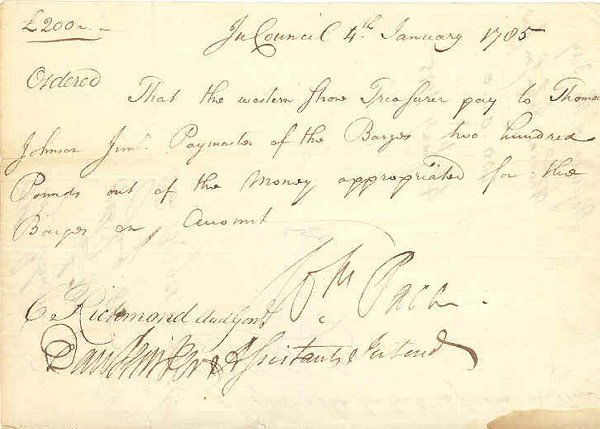 £200..
In Council 4th January 1785
Ordered
That the western Shore Treasurer pay to Thomas
Johnson Junr. Paymaster of the Barges two hundred
Pounds out of the Money appropriated for the
Barges on Account
Wm Paca
C Richmond Aud Genl